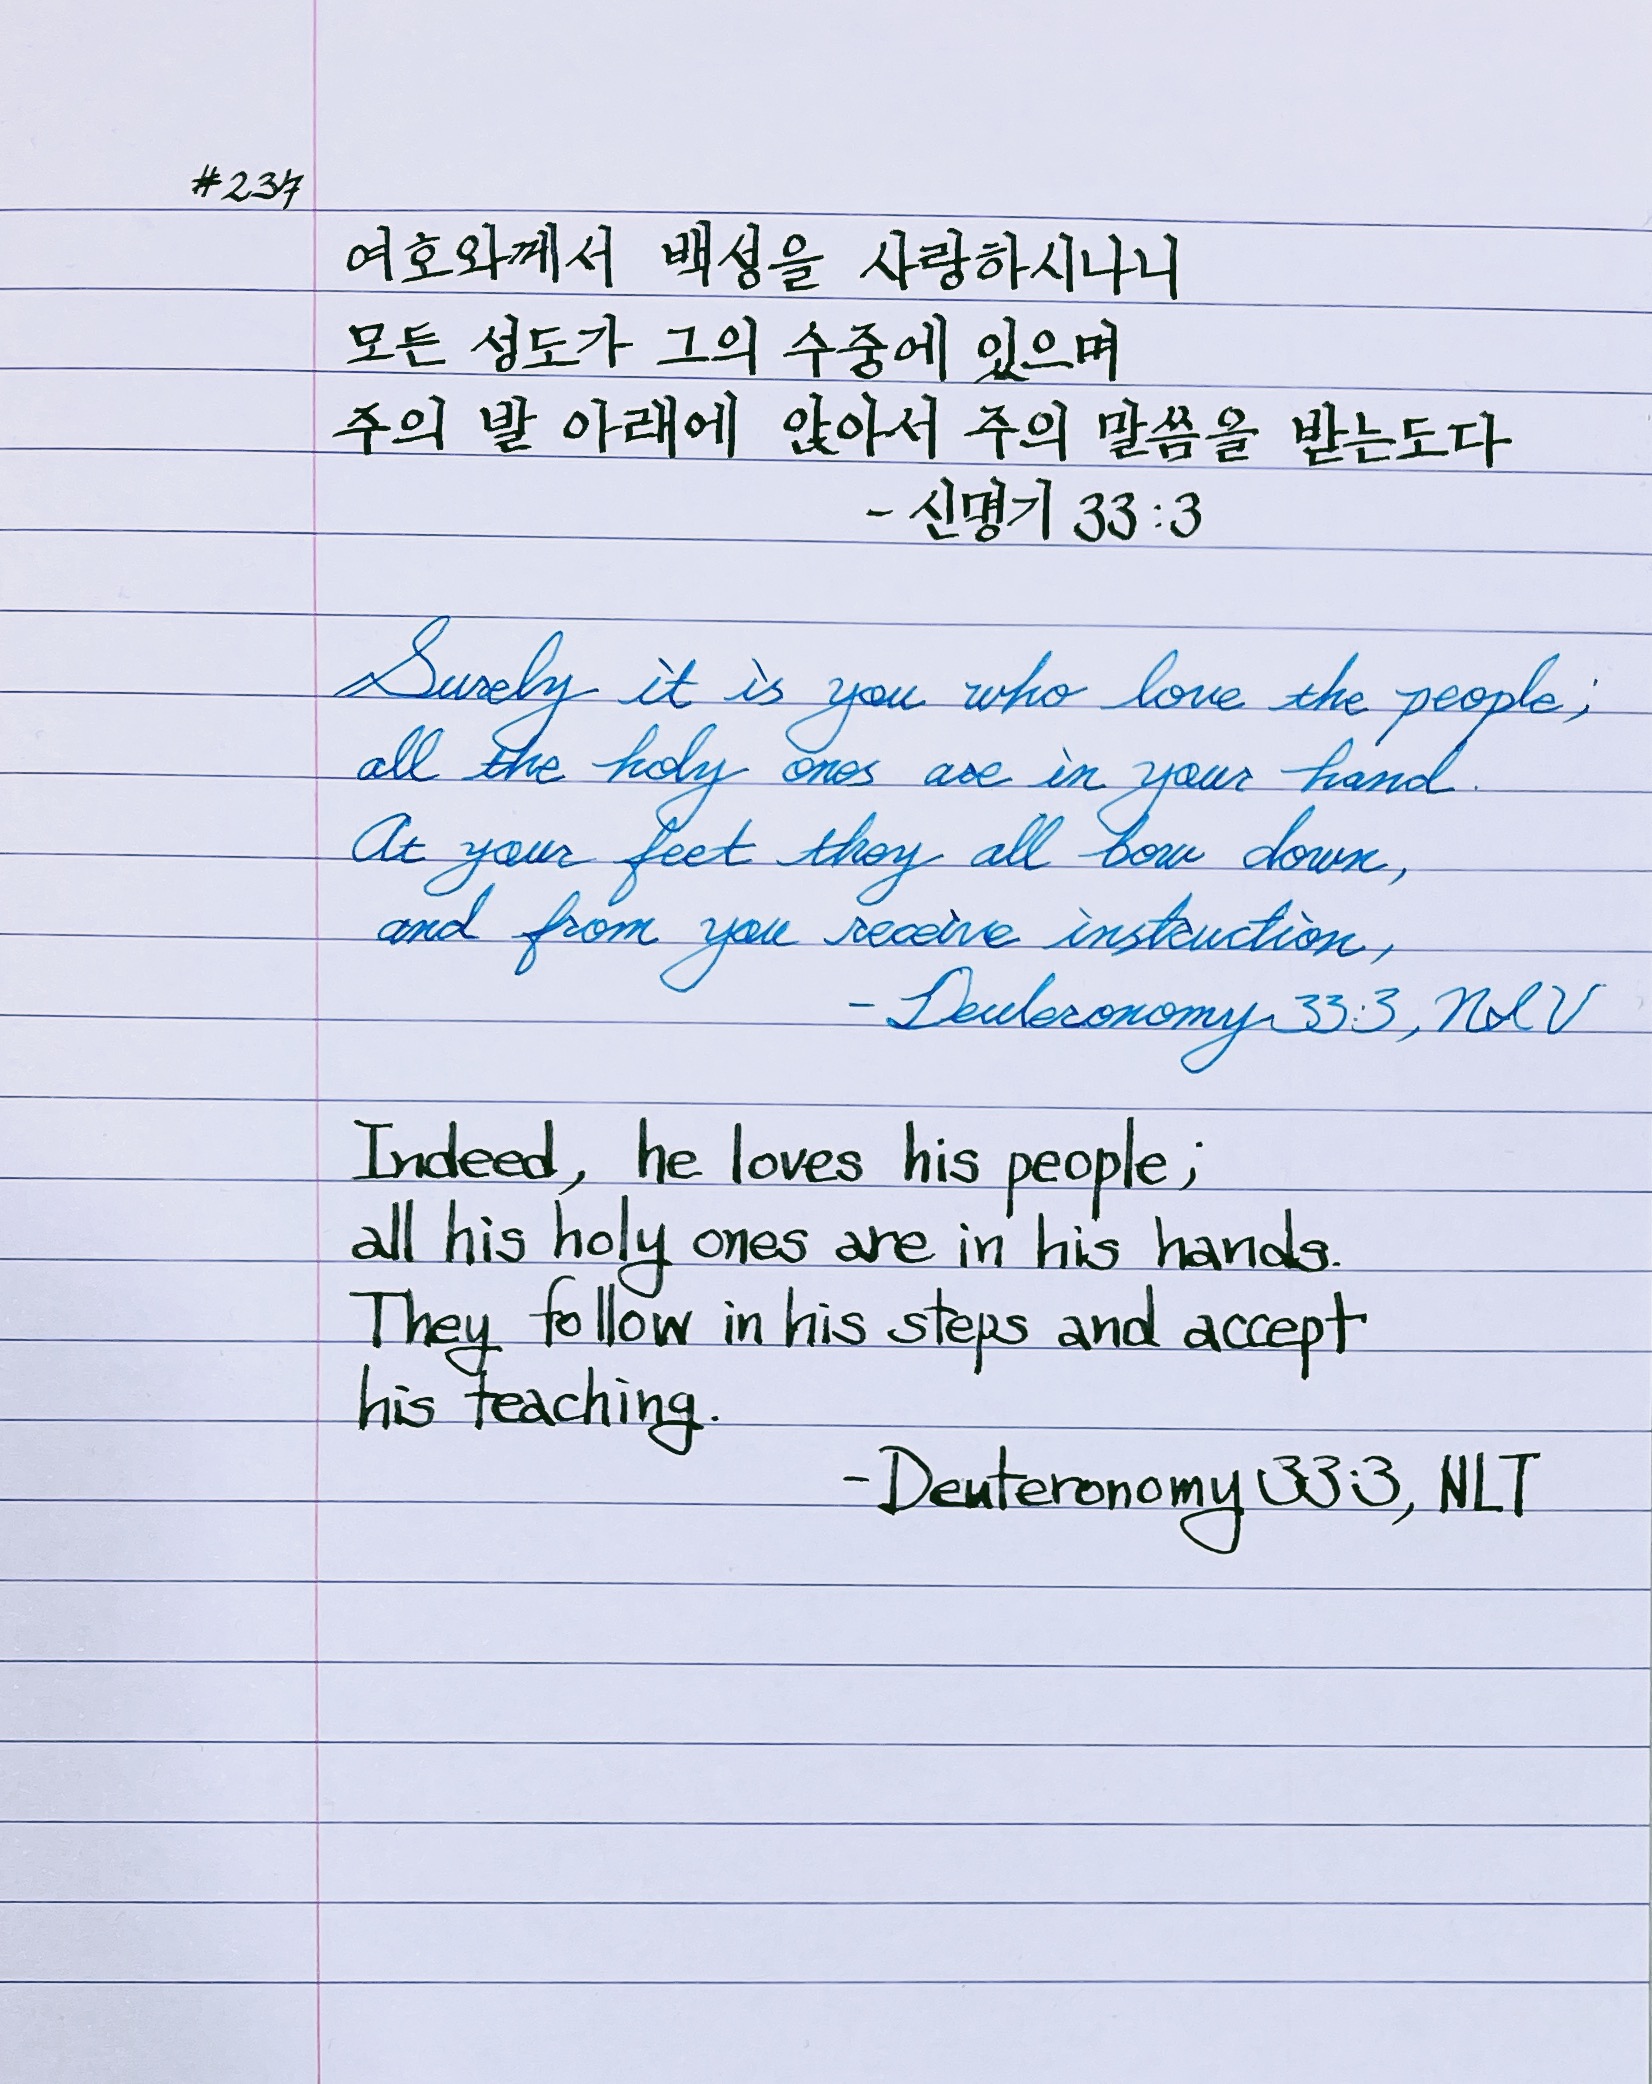 #237
여호와께서 백성을 사랑하시나니
모든 성도가 그의 수중에 있으며
주의 발 아래에 앉아서 주의 말씀을 받는도다
- 신명기 33:3
Surely it is you who love the people;
all the holy ones are in your hand.
At your feet they all bow down,
and from you receive instruction,
- Deuteronomy 33:3, NIV
Indeed, he loves his people;
all his holy ones are in his hands.
They follow in his steps and accept
his teaching.
- Deuteronomy 33:3, NLT